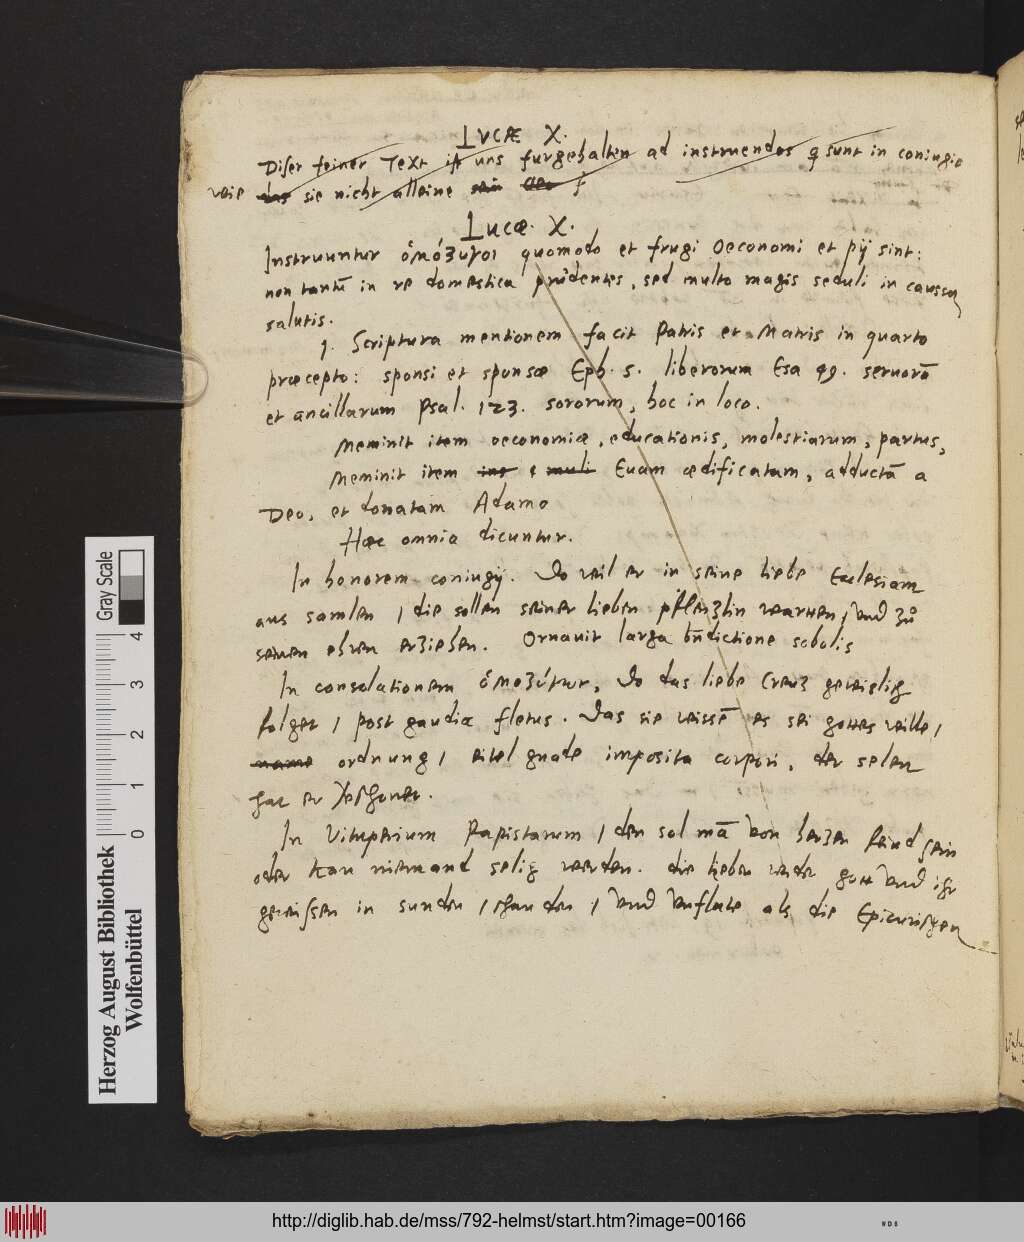 LVCÆ X.
Diser feiner Text ist uns furgehalten ad instruendos q sunt in coniugio
wie das sie nicht alleine sein
Lucæ. X.
Instruuntur ὁμόζυγοι quomodo et frugi Oeconomi et pij sint:
non tantũ in re domestica prudentes, sed multo magis seduli in caussa
salutis.
1. Scriptura mentionem facit Patris et Matris in quarto
præcepto: sponsi et sponsæ Eph. 5. liberorum Esa 49. seruorũ
et ancillarum Psal. 123. sororum, hoc in loco.
Meminit item oeconomiæ, educationis, molestiarum, partus,
Meminit item Euam ædificatam, adductã a
Deo, et donatam Adamo
Hæc omnia dicuntur.
In honorem coniugij. Do weil er in seine liebe Ecclesiam
aus samlen / die sollen seiner lieben pflenzlin warten / vnd zů
seinen ehren erziehen. Ornauit larga bñdictione sobolis
In consolationem ὁμοζύγων, Do das liebe Creuz geweislig
folget / post gaudia fletus. Das sie wissẽ es sei gottes wille /
name ordnung / eitel gnade imposita corpori, der selen
hat er verschonet.
In Vituperium Papistarum / den sol mã von herzen feind sein
oder kan niemand selig werden. die lieben wider gott vnd ihr
gewissen in sunden / schanden / vnd vnflate als die Epicurischen
Herzog August Bibliothek
Wolfenbüttel
Gray Scale
0 1 2 3 4
http://diglib.hab.de/mss/792-helmst/start.htm?image=00166